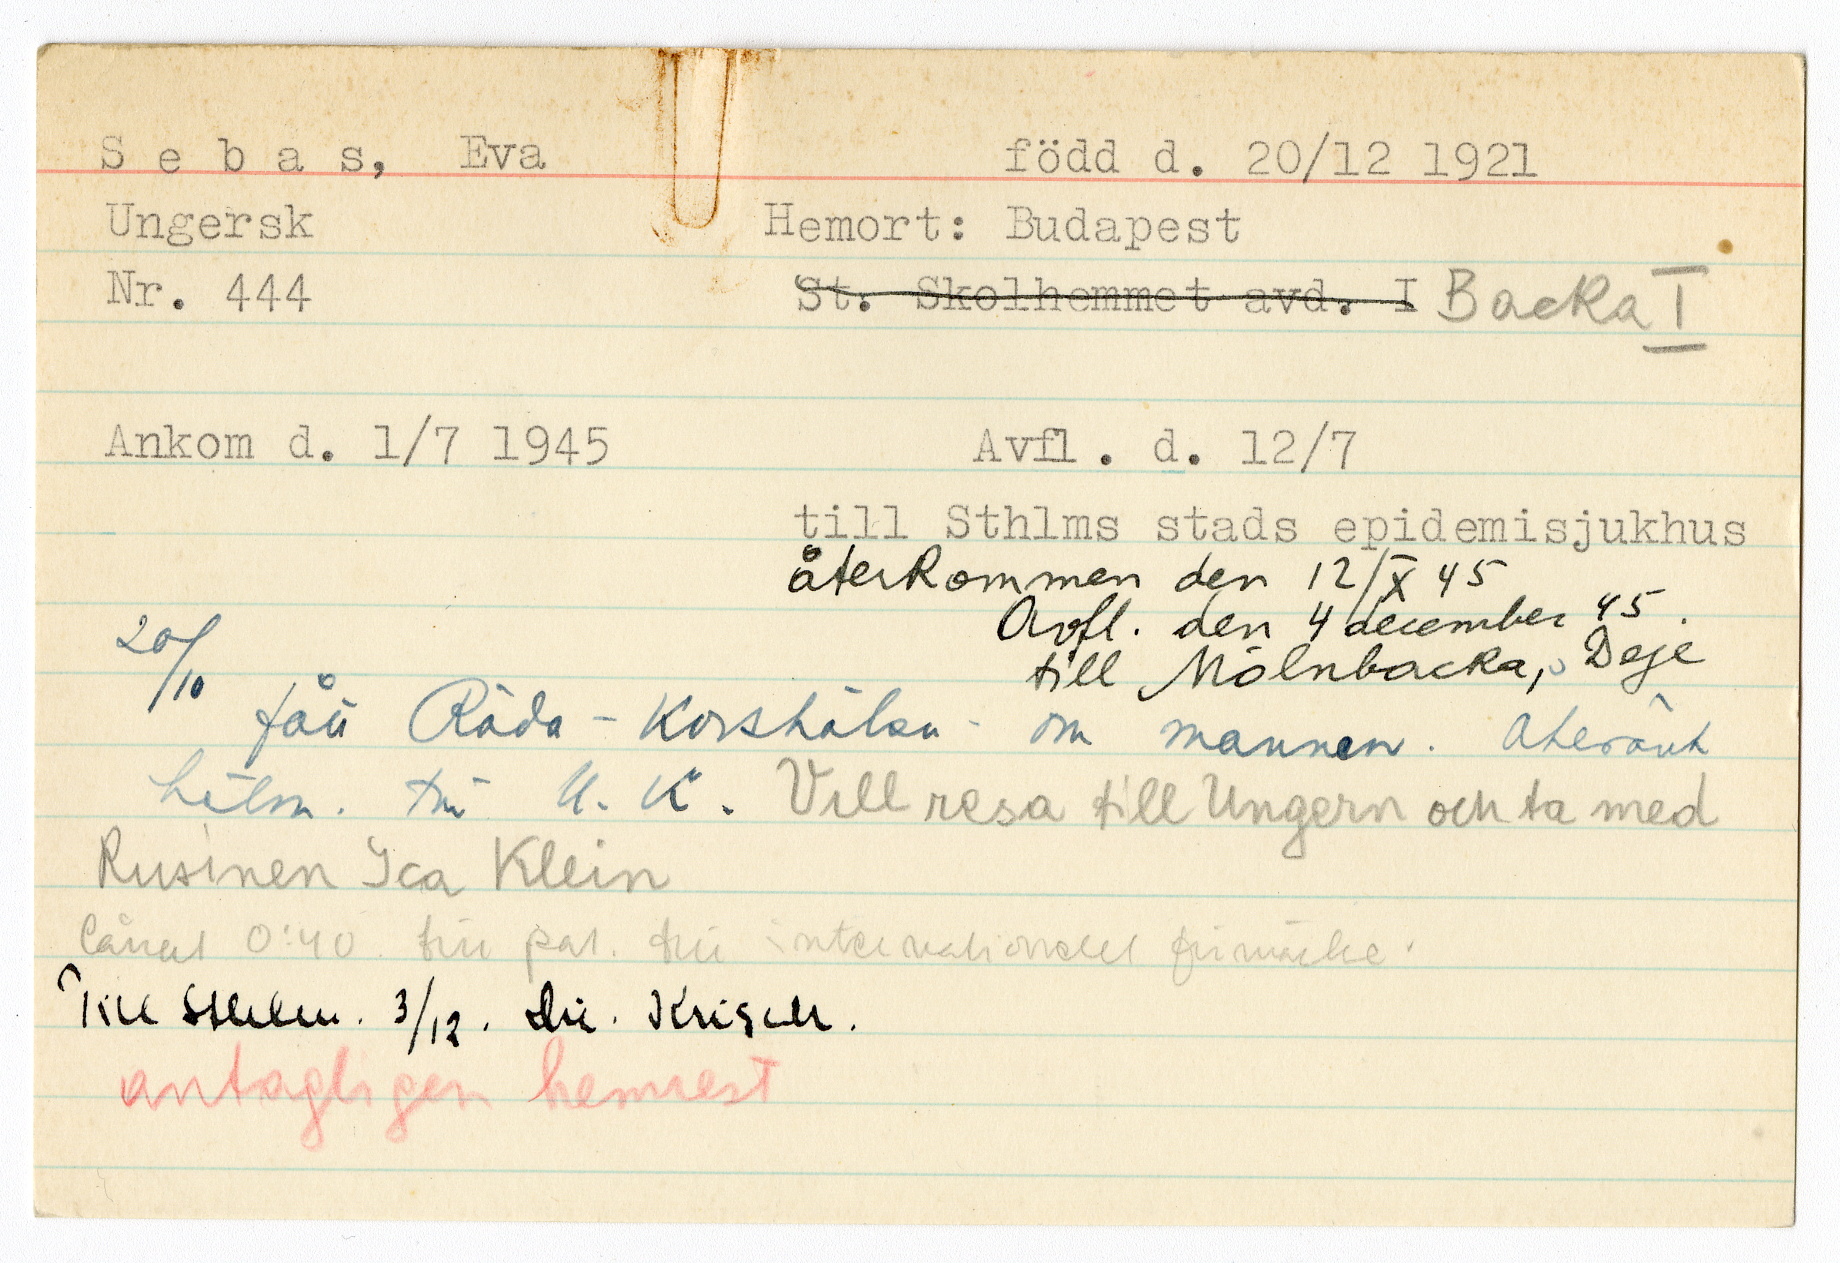 Sebas, Eva född d. 20/12 1921
Ungersk Hemort: Budapest
Nr. 444 St. Skolhemmet avd. I Backa I
Ankom d. 1/7 1945 Avfl. d. 12/7
till Sthlms stads epidemisjukhus
återkommen den 12/X 45
Avfl. den 4 december 45.
till Mölnbacka, Deje
20/10
fått Röda-Korshälsn om mannen. Återsänt
hälsn. till U.K. Vill resa till Ungern och ta med
Kusinen Ica Klein
Lånat 0:40 till till internationellt frimärke.
Till Sthlm. 3/12. Dir. Krisch.
antagligen hemrest